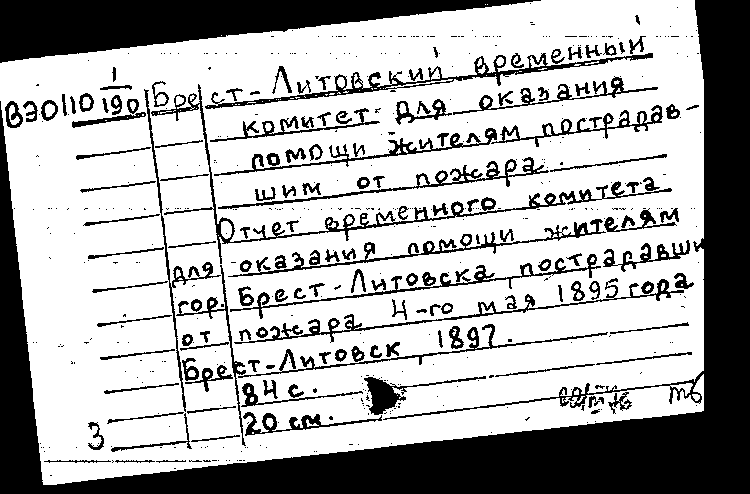 ВЭ0110 1/190 Брест-Литовский временный
комитет для оказания
помощи жителям, пострадав-
шим от пожара.
Отчет временного комитета
для оказания помощи жителям
гор. Брест-Литовска, пострадавши
от пожара 4-го мая 1895 года
Брест-Литовск, 1897.
84 с.
20 см.
3